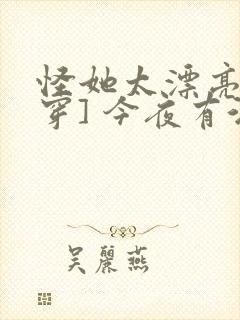 怪她太漂亮
穿]今夜有
吴麗燕